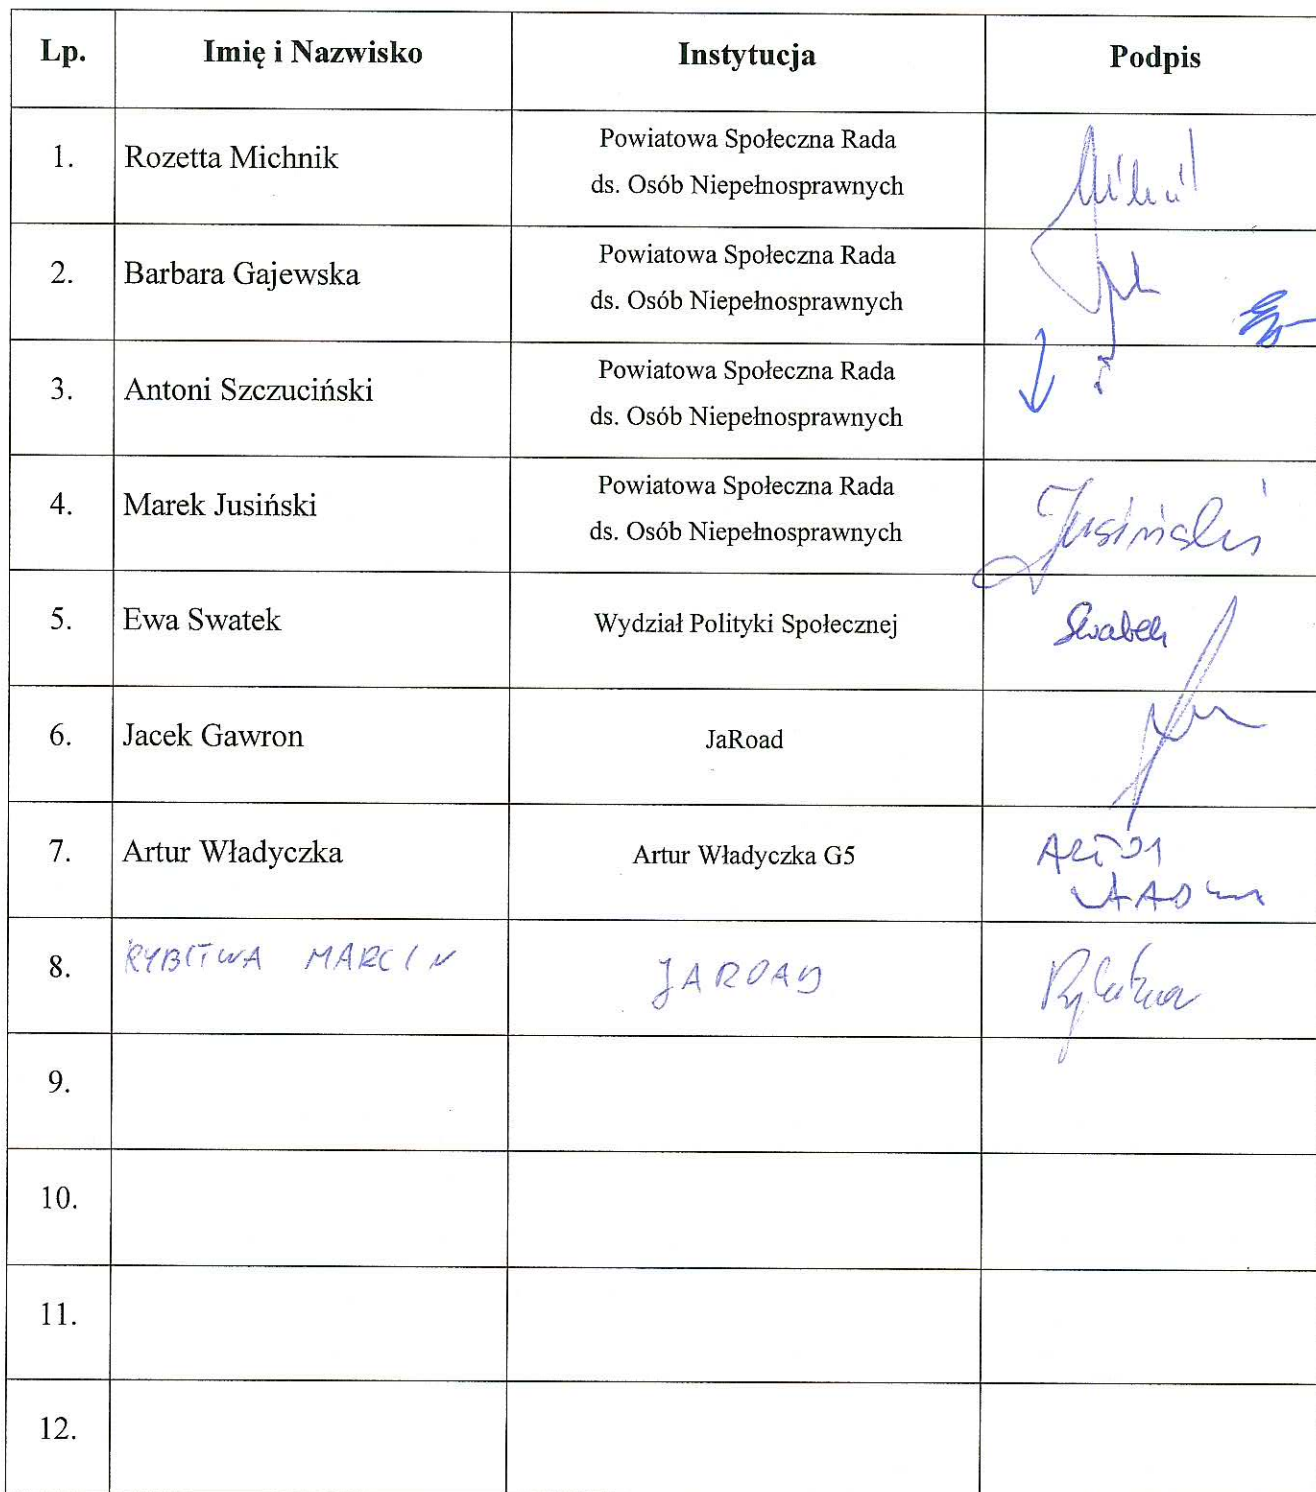 Lp. Imię i Nazwisko Instytucja Podpis
1. Rozetta Michnik Powiatowa Społeczna Rada
ds. Osób Niepełnosprawnych
2. Barbara Gajewska Powiatowa Społeczna Rada
ds. Osób Niepełnosprawnych
3. Antoni Szczuciński Powiatowa Społeczna Rada
ds. Osób Niepełnosprawnych
4. Marek Jusiński Powiatowa Społeczna Rada
ds. Osób Niepełnosprawnych Jusiński
5. Ewa Swatek Wydział Polityki Społecznej Swatek
6. Jacek Gawron JaRoad
7. Artur Władyczka Artur Władyczka G5
8. RYBITWA MARCIN JAROAD Rybitwa
9.
10.
11.
12.